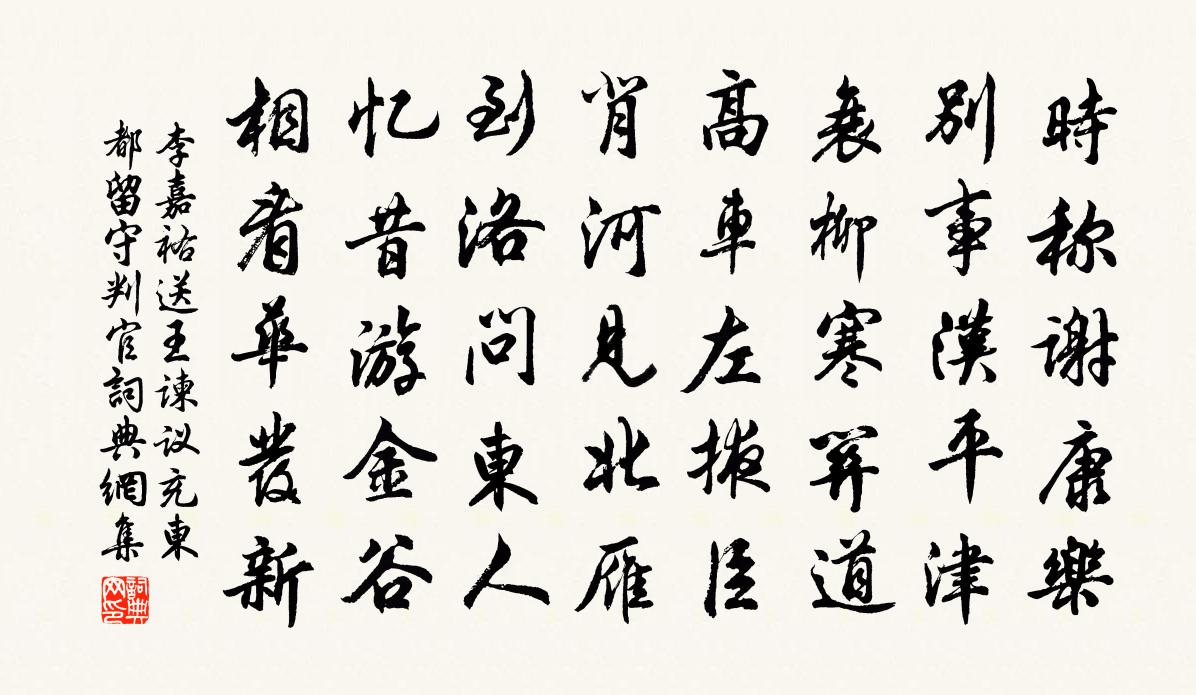 時称謝康樂
別事漢平津
衰柳寒關道
高車左掖臣
背河見北雁
到洛問東人
忆昔游金谷
相看華發新
李嘉祐送王諫议充東
都留守判官詞典網集
詞典
网印